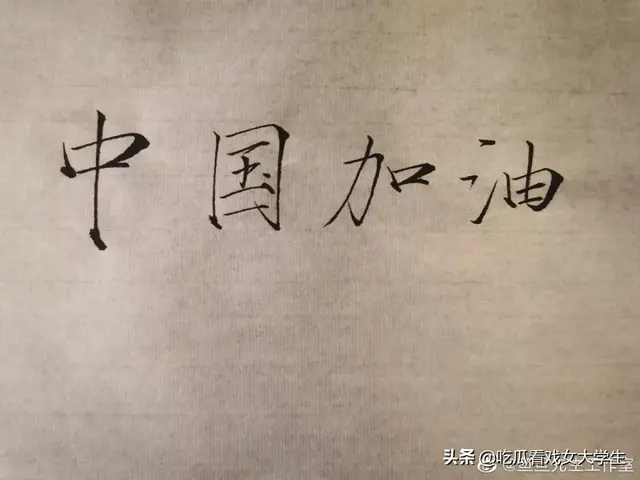 中国加油
头条 @吃瓜看戏女大学生